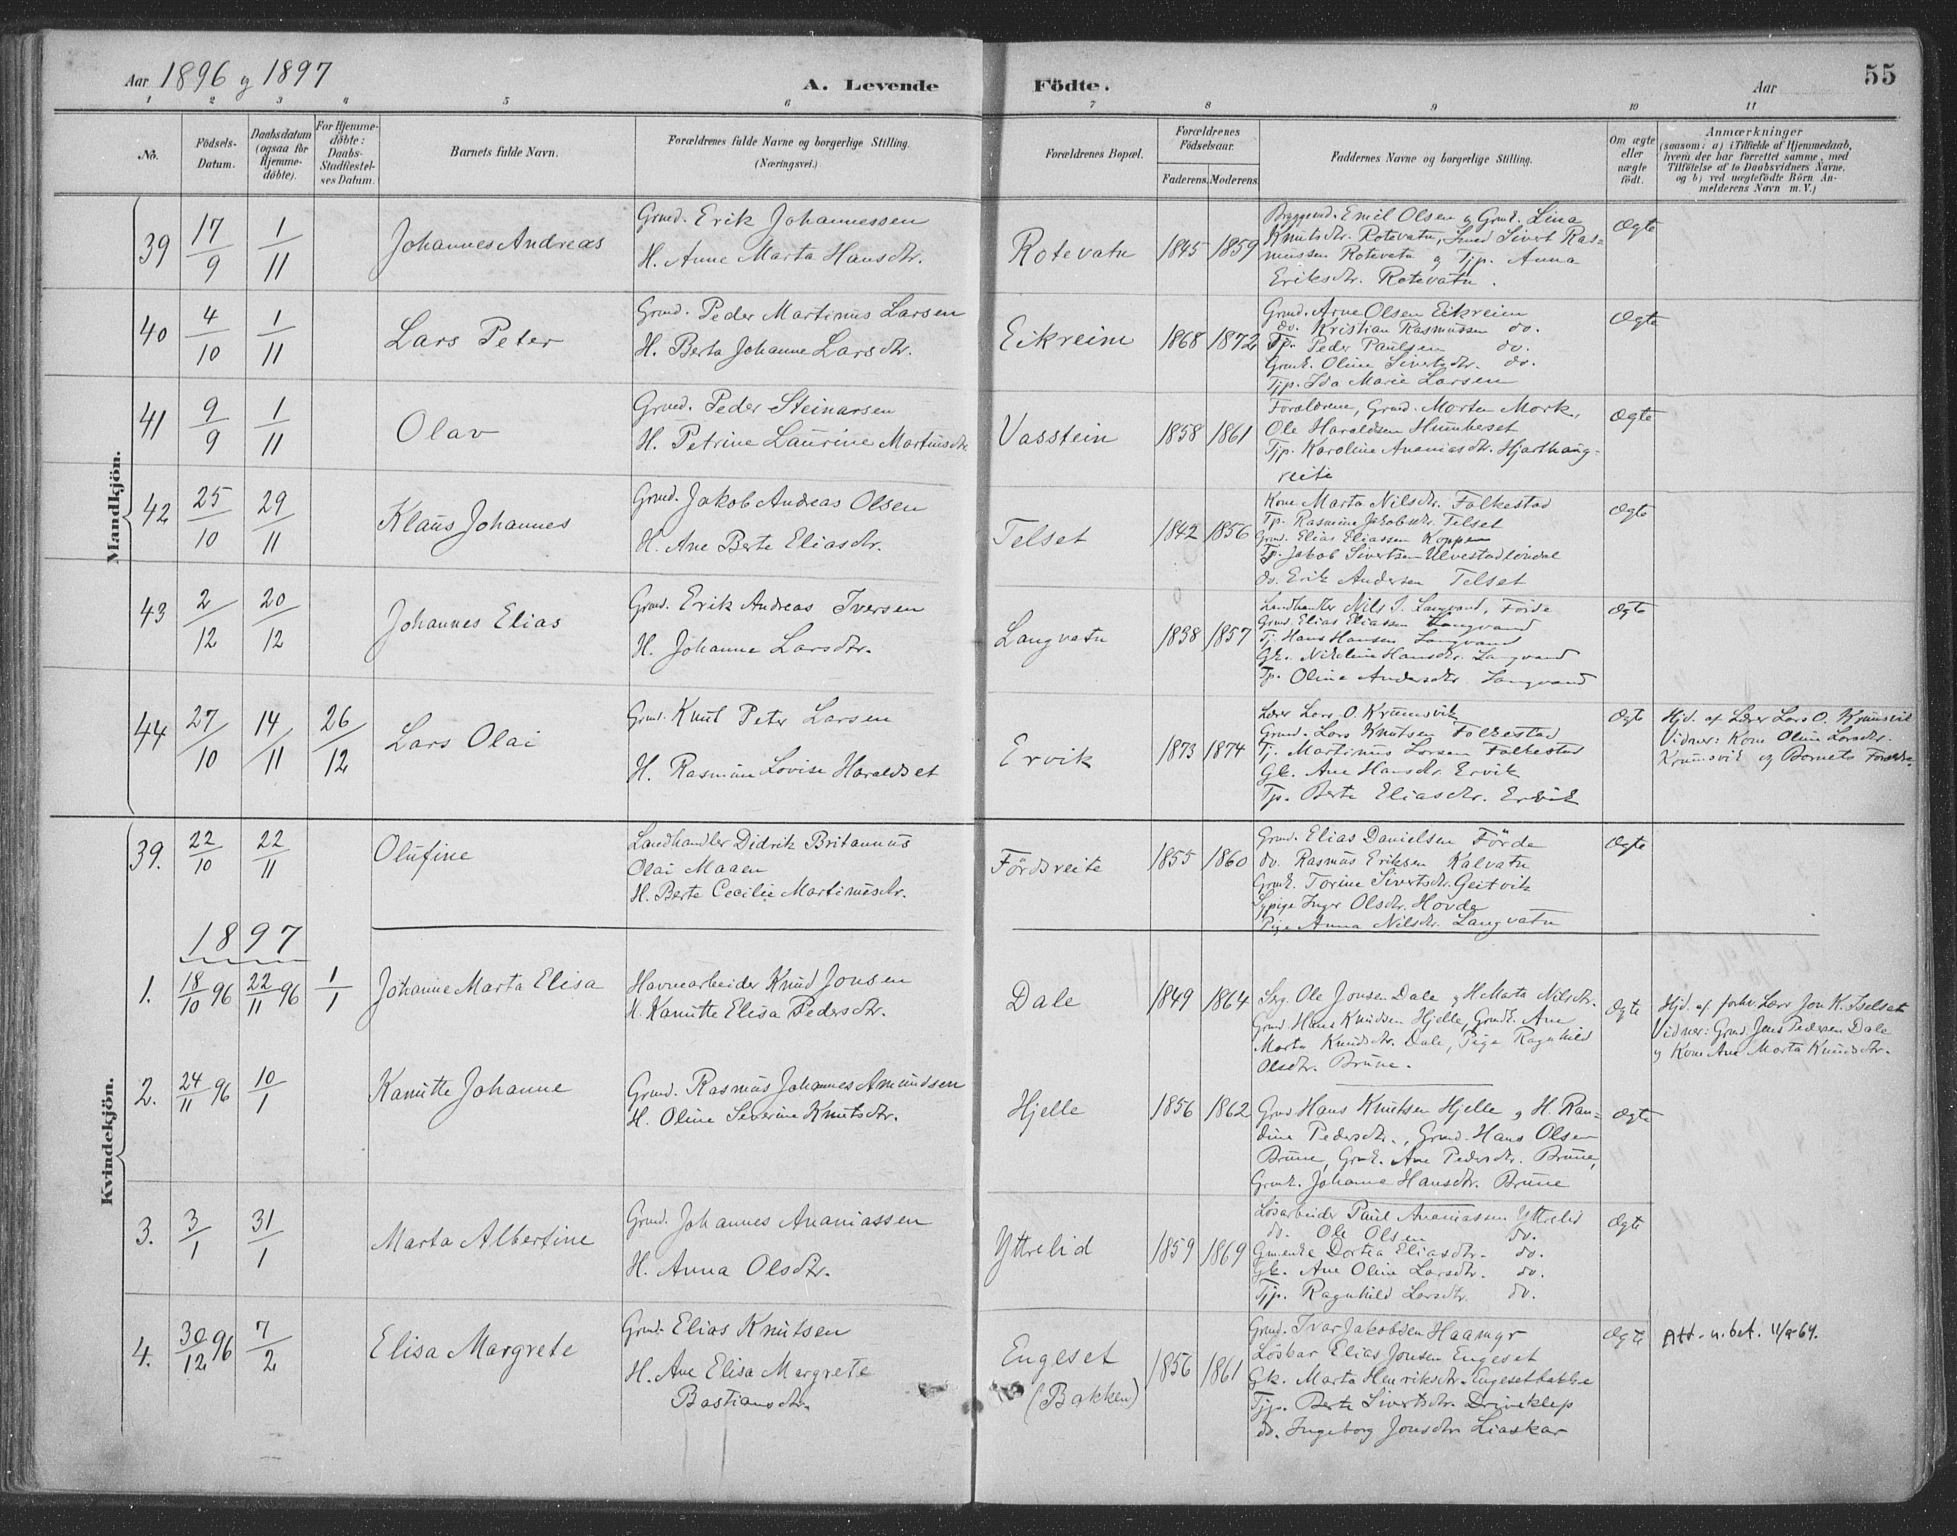 Aar 1896 g 1897
A. Levende
Födte.
Aar
55
1 2 3 4 5 6 7 8 9 10 11
No.
Födsels-
Datum.
Daabsdatum
(ogsaa for
Hjemme-
døbte).
For Hjemme-
døbte:
Daabs-
Stadfæstel-
ses Datum.
Barnets fulde Navn.
Forældrenes fulde Navne og borgerlige Stilling.
(Næringsvei.)
Forældrenes Bopæl.
Forældrenes
Födselsaar.
Faderens. Moderens.
Faddernes Navne og borgerlige Stilling.
Om ægte
eller
uægte
født.
Anmærkninger
(saasom: a) i Tilfælde af Hjemmedaab,
hvem der har forrettet samme, med
Tilføielse af to Daabsvidners Navne,
og b) ved uægtefødte Börn An-
melderens Navn m. V.)
Mandkjön.
39 17/9 1/11 Johannes Andreas
Grmd. Erik Johannessen
H. Anne Marta Hansdtr.
Rotevatn 1845 1859
Byggemd. Emil Olsen og Grmk. Lina
Knutsdtr. Rotevatn, Smed Sivert Ras-
mussen Rotevatn og Tjp. Anna
Eriksdtr. Rotevatn.
Ægte
40 4/10 1/11 Lars Peter
Grmd. Peder Martinus Larsen
H. Berta Johanne Larsdtr.
Eikreim 1868 1872
Grmd. Arne Olsen Eikreim
do. Kristian Rasmussen do.
Tp. Peder Paulsen do.
Grmk. Oline Sivertsdtr. do.
Tjp. Ida Marie Larsen
Ægte
41 9/9 1/11 Olav
Grmd. Peder Steinarsen
H. Petrine Laurine Martinsdtr
Vasstein 1858 1861
Forældrene, Grmd. Morten Mork,
Ole Haraldsen Humberset
Tjp. Karoline Ananiasdtr. Hjorthaug-
reite
Ægte
42 25/10 29/11 Klaus Johannes
Grmd. Jakob Andreas Olsen
H. Ane Berte Eliasdtr.
Telset 1842 1856
Kone Marta Nilsdtr. Folkestad
Tp. Rasmine Jakobsdtr. Telset
Grmd. Elias Eliassen Koppen
Tp. Jakob Sivertsen Ulvestadlindal
do. Erik Andersen Telset
Ægte
43 2/12 20/12 Johannes Elias
Grmd. Erik Andreas Iversen
H. Johanne Larsdtr.
Langvatn 1838 1857
Landhandler Nils J. Langvand, Förde
Grmd. Elias Eliassen Langvand
Tj. Hans Hansen Langvand
Gk. Nikoline Hansdtr. Langvand
Tp. Oline Andersdtr Langvand
Ægte
44 27/10 14/11 26/12 Lars Olai
Grmd. Knut Peter Larsen
H. Rasmine Lovise Haraldset
Ervik 1873 1874
Lærer Lars O. Krumsvik
Grmd. Lars Knutsen Folkestad
Tj. Martinus Larsen Folkestad
Gk. Ane Hansdtr. Ervik
Tp. Berte Eliasdtr. Ervik
Ægte
Hjd. af Lærer Lars O. Krumsvik
Vidner: Kone Oline Larsdtr.
Krumsvik og Barnets Forældre.
Kvindekjön.
39. 22/10 22/11 Olufine
Landhandler Didrik Britannus
Olai Maaen
H. Berte Cecilie Martinusdtr.
Fördsreite 1855 1860
Grmd. Elias Danielsen Förde
do. Rasmus Eriksen Kalvatn
Grmk. Torine Sivertsdtr. Geitvik
Sypige Inger Olsdtr. Hovde
Pige Anna Nilsdtr. Langvatn
Ægte
1897
1. 18/10 96 22/11 96 1/1 Johanne Marta Elisa
Havnearbeider Knud Jonsen
H. Kanutte Elisa Pedersdtr.
Dale 1849 1864
Srg. Ole Jonsen Dale og H. Marta Nilsdtr.
Grmd. Hans Knudsen Hjelle, Grmdk. Ane
Marta Knudsdtr. Dale, Pige Ragnhild
Olsdtr. Brune.
Ægte
Hjd. af forhv. Lær Jon K. Aselset
Vidner: Grmd. Jens Pedersen Dale
og Kone Ane Marta Knudsdtr.
2. 24/11 96 10/1 Kanutte Johanne
Grmd. Rasmus Johannes Amundsen
H. Oline Severine Knutsdtr.
Hjelle 1856 1862
Grmd Hans Knutsen Hjelle og H. Ran-
dine Pedersdtr., Grmd. Hans Olsen
Brune, Grmk. Ane Pedersdtr. Brune,
Grmk. Johanne Hansdtr. Brune
Ægte
3. 3/1 31/1 Marta Albertine
Grmd. Johannes Ananiassen
H. Anna Olsdtr.
Yttrelid 1859 1869
Løsarbeider Paul Ananiassen Yttrelid
do. Ole Olsen do.
Gmenke Dortea Eliasdtr. do.
Gk. Ane Oline Larsdtr. do.
Tjp. Ragnhild Larsdtr. do.
Ægte
4. 30/12 96 7/2 Elisa Margrete
Grmd. Elias Knutsen
H. Ane Elisa Margrete
Bastiansdtr.
Engeset
(Bakken) 1856 1861
Grmd. Ivar Jakobsen Haamyr
Løskar Elias Jonsen Engeset
Gk. Marta Henriksdtr. Engesetbakke
Tjp. Berte Sivertsdtr. Driveklep
do. Ingeborg Jonsdtr Liaskar
Ægte
Att. u. bet. 11/9-64.